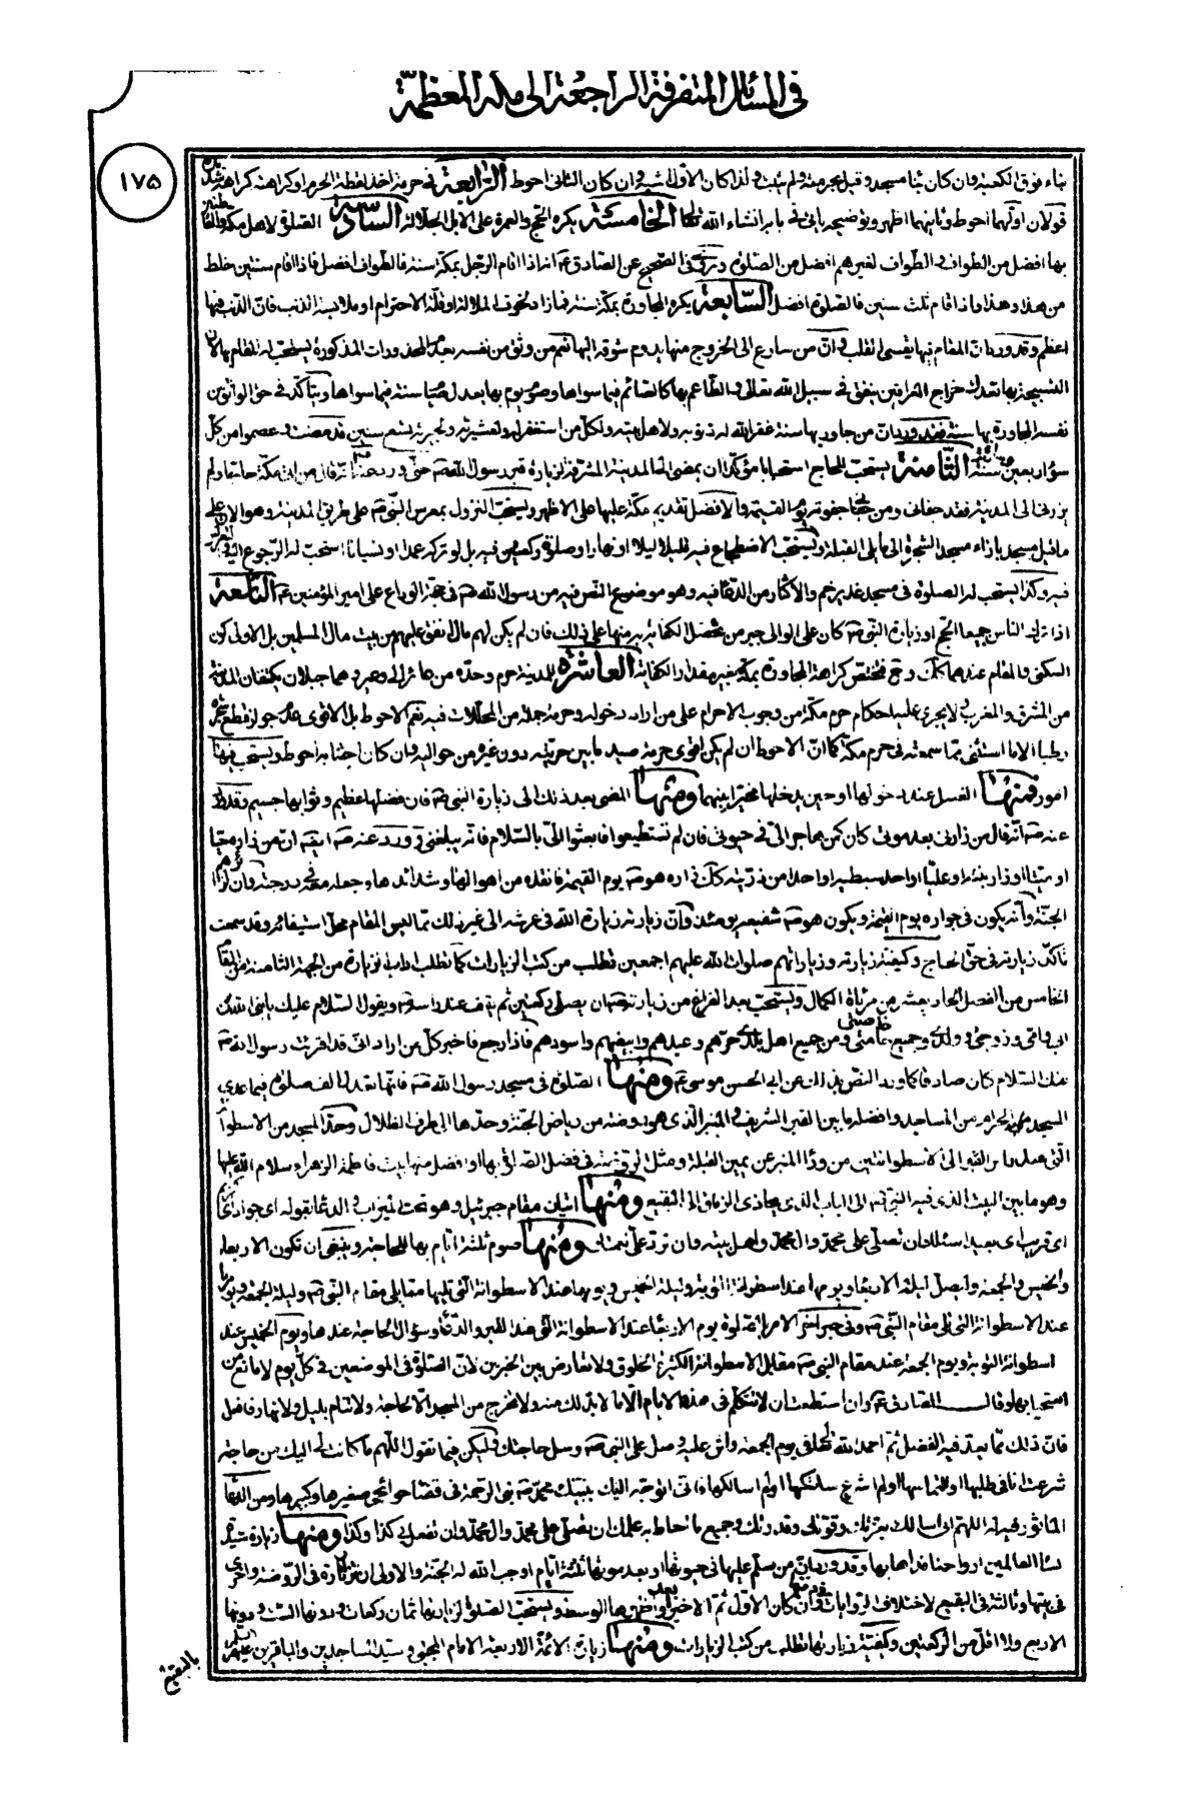 فى المسائل المتفرقة الراجعة الى مكة المعظمة
١٧۵
بناء فوق الكعبة وان كان بناء مسجد وقيل بحرمته ولم يثبت ولذا كان الاول اشبه وان كان الثانى احوط الرابعة فى حرمة اخذ لقطة الحرم او كراهته كراهة شديدة
قولان اولهما احوط وثانيهما اظهر وتوضيحه ياتى فى بابه انشاء الله تعالى الخامسة يكره الحج والعمرة على الابل الجلالة السادسة الصلوة لاهل مكة والقاطنين
بها افضل من الطواف والطواف لغيرهم افضل من الصلوة وروى فى الصحيح عن الصادق ع انه اذا اقام الرجل بمكة سنة فالطواف افضل فاذا اقام سنتين خلط
من هذا وهذا واذا اقام ثلث سنين فالصلوة افضل السابعة يكره المجاورة بمكة سنة فما زاد لخوف الملالة او قلة الاحترام او ملابسة الذنب فان الذنب فيها
اعظم وقد ورد ان المقام فيها يقسى القلب وان من سارع الى الخروج منها يدوم شوقه اليها نعم من وثق من نفسه بعدم المحذورات المذكورة يستحب له المقام بها لان
التسبيحة بها تعدل خراج العراقين ينفق فى سبيل الله تعالى والطاعم بها كالصائم فيما سواها وصوم يوم بها يعدل صيام سنة فيما سواها ويتاكد فى حق الواثق من
نفسه المجاورة بها سنة فقد ورد ان من جاور بها سنة غفر الله له ذنوبه ولاهل بيته ولكل من استغفر له ولعشيرته ولجيرته تسع سنين قد مضت وعصموا من كل
سوء اربعين ومائة سنة الثامنة يستحب للحاج استحبابا مؤكدا ان يمضى الى المدينة المشرفة لزيارة قبر رسول الله ص حتى ورد عنه انه قال من اتى مكة حاجا ولم
يزرنى الى المدينة فقد جفانى ومن جفانى جفوته يوم القيمة والافضل تقديم مكة عليها على الاظهر ويستحب النزول بمعرس النبى ص على طريق المدينة وهو الان على
ما قيل مسجد بازاء مسجد الشجرة الى ما يلى القبلة ويستحب الاضطجاع فيه قليلا ليلا او نهارا وصلوة ركعتين فيه بل لو تركه عمدا او نسيانا استحب له الرجوع اليه والتعريس
فيه وكذا يستحب له الصلوة فى مسجد غدير خم والاكثار من الدعاء فيه وهو موضع النص فيه من رسول الله ص فى حجة الوداع على امير المؤمنين ع التاسعة
اذا ترك الناس جميعا الحج او زيارة النبى ص كان على الوالى جبر من تحصل الكفاية به منها على ذلك فان لم يكن لهم مال انفق عليهم من بيت مال المسلمين بل الاولى كون
السكنى والمقام عندهما كذلك وح فتختص كراهة المجاورة بمكة بغير مقدار الكفاية العاشرة للمدينة حرم وحده من عائر الى وعير وهما جبلان يكتنفان المدينة
من المشرق والمغرب ولا يجرى عليه احكام حرم مكة من وجوب الاحرام على من اراد دخوله وحرمة جملة من المحللات فيه نعم الاحوط بل الاقوى عدم جواز قطع شجره
رطبا الا ما استثنى مما سمعته فى حرم مكة كما ان الاحوط ان لم يكن اقوى حرمة صيد ما بين حرتيه دون غيره من حواليه وان كان اجتنابه احوط ويستحب فيها
امور فمنها الغسل عند دخولها او حين يدخلها مخيرا بينهما ومنها المضى بعد ذلك الى زيارة النبى ص فان فضلها عظيم وثوابها جسيم وقد ورد
عنه ص انه قال من زارنى بعد موتى كان كمن هاجر الى فى حيوتى فان لم تستطيعوا فابعثوا الى بالسلام فانه يبلغنى وورد عنه ص ايضا ان من زاره حيا
او ميتا او زار ابنه او عليا او احد سبطيه او احدا من ذريته كان زاره هو ص يوم القيمة فانقذه من اهوالها وشدائدها وجعله معه فى درجته وان لزائرهم
الجنة وانه يكون فى جواره يوم القيمة ويكون هو ص شفيعه يومئذ وان زيارته زيارة الله فى عرشه الى غير ذلك مما ليس المقام محل استيفائه وقد سمعت
تاكد زيارته فى حق الحاج وكيفية زيارته وزياراتهم صلوات الله عليهم اجمعين تطلب من كتب الزيارات كما تطلب اداب الزيارة من الجهة الثامنة من المقام
الخامس من الفصل الحاديعشر من مرآة الكمال ويستحب بعد الفراغ من زيارته ص ان يصلى ركعتين ثم يقف عند راسه ص ويقول السلام عليك يا نبى الله من
ابى وامى وزوجتى وولدى وجميع حامتى ومن جميع اهل بلدى حرهم وعبدهم وابيضهم واسودهم فاذا رجع فاخبر كل من اراد انى قد اقرئت رسول الله ص
عنك السلام كان صادقا كما ورد النص بذلك عن ابى الحسن موسى ع ومنها الصلوة فى مسجد رسول الله ص فانها تعدل الف صلوة فيما عدى
المسجد الحرام من المساجد وافضله ما بين القبر الشريف والمنبر الذى هو روضة من رياض الجنة وحدها الى طرف الظلال وحد المسجد من الاسطوانة
التى عند راس القبر الى الاسطوانتين من وراء المنبر عن يمين القبلة ومثل الروضة فى فضل الصلوة بها او افضل منها بيت فاطمة الزهراء سلام الله عليها
وهو ما بين البيت الذى فيه النبى ص الى الباب الذى يحاذى الزقاق الى البقيع ومنها اتيان مقام جبرئيل وهو تحت الميزاب والدعاء بقوله اى جواد اى كريم
اى قريب اى بعيد اسئلك ان تصلى على محمد وال محمد واهل بيته وان ترد على نعمتك ومنها صوم ثلثة ايام بها للحاجة وينبغى ان تكون الاربعاء
والخميس والجمعة وان يصل ليلة الاربعاء ويومها عند اسطوانة التوبة وليلة الخميس ويومها عند الاسطوانة التى تليها مقابل مقام النبى ص وليلة الجمعة ويومها
عند الاسطوانة التى تلى مقام النبى ص وفى خبر اخر الامر بالصلوة يوم الاربعاء عند الاسطوانة التى عند القبر والدعاء وسؤال الحاجة عندها ويوم الخميس عند
اسطوانة التوبة ويوم الجمعة عند مقام النبى ص مقابل الاسطوانة الكثيرة الخلوق ولا تعارض بين الخبرين لان الصلوة فى الموضعين فى كل يوم لا مانع من
استحبابها وقال الصادق ع وان استطعت ان لا تتكلم فى هذه الايام الا ما لا بد لك منه ولا تخرج من المسجد الا لحاجة ولا تنام بليل ولا نهار فافعل
فان ذلك مما يعد فيه الفضل ثم احمد الله تعالى فى يوم الجمعة واثن عليه وصل على النبى ص وسل حاجتك وليكن فيما تقول اللهم ما كانت لى اليك من حاجة
شرعت انا فى طلبها او التماسها او لم اشرع سئلتكها او لم اسئلكها فانى اتوجه اليك بنبيك محمد ص نبى الرحمة فى قضاء حوائجى صغيرها وكبيرها ومن الدعاء
الماثور فيه اللهم انى اسئلك بعزتك وقوتك وقدرتك وجميع ما احاط به علمك ان تصلى على محمد وال محمد وان تفعل بى كذا وكذا ومنها زيارة سيدة
نساء العالمين ارواحنا فداها بها وقد ورد ان من سلم عليها فى حيوتها او بعد موتها ثلثة ايام اوجب الله له الجنة والاولى ان تزار تارة فى الروضة واخرى
فى بيتها وثالثة فى البقيع لاختلاف الروايات وان كان الاول ثم الاخير اظهرها الوسط ويستحب الصلوة لزيارتها ثمان ركعات ودونها الست ودونها
الاربع ولا اقل من الركعتين وكيفية زيارتها تطلب من كتب الزيارات ومنها زيارة الائمة الاربعة الامام المجتبى وسيد الساجدين والباقرين عليهم السلم
بالبقيع